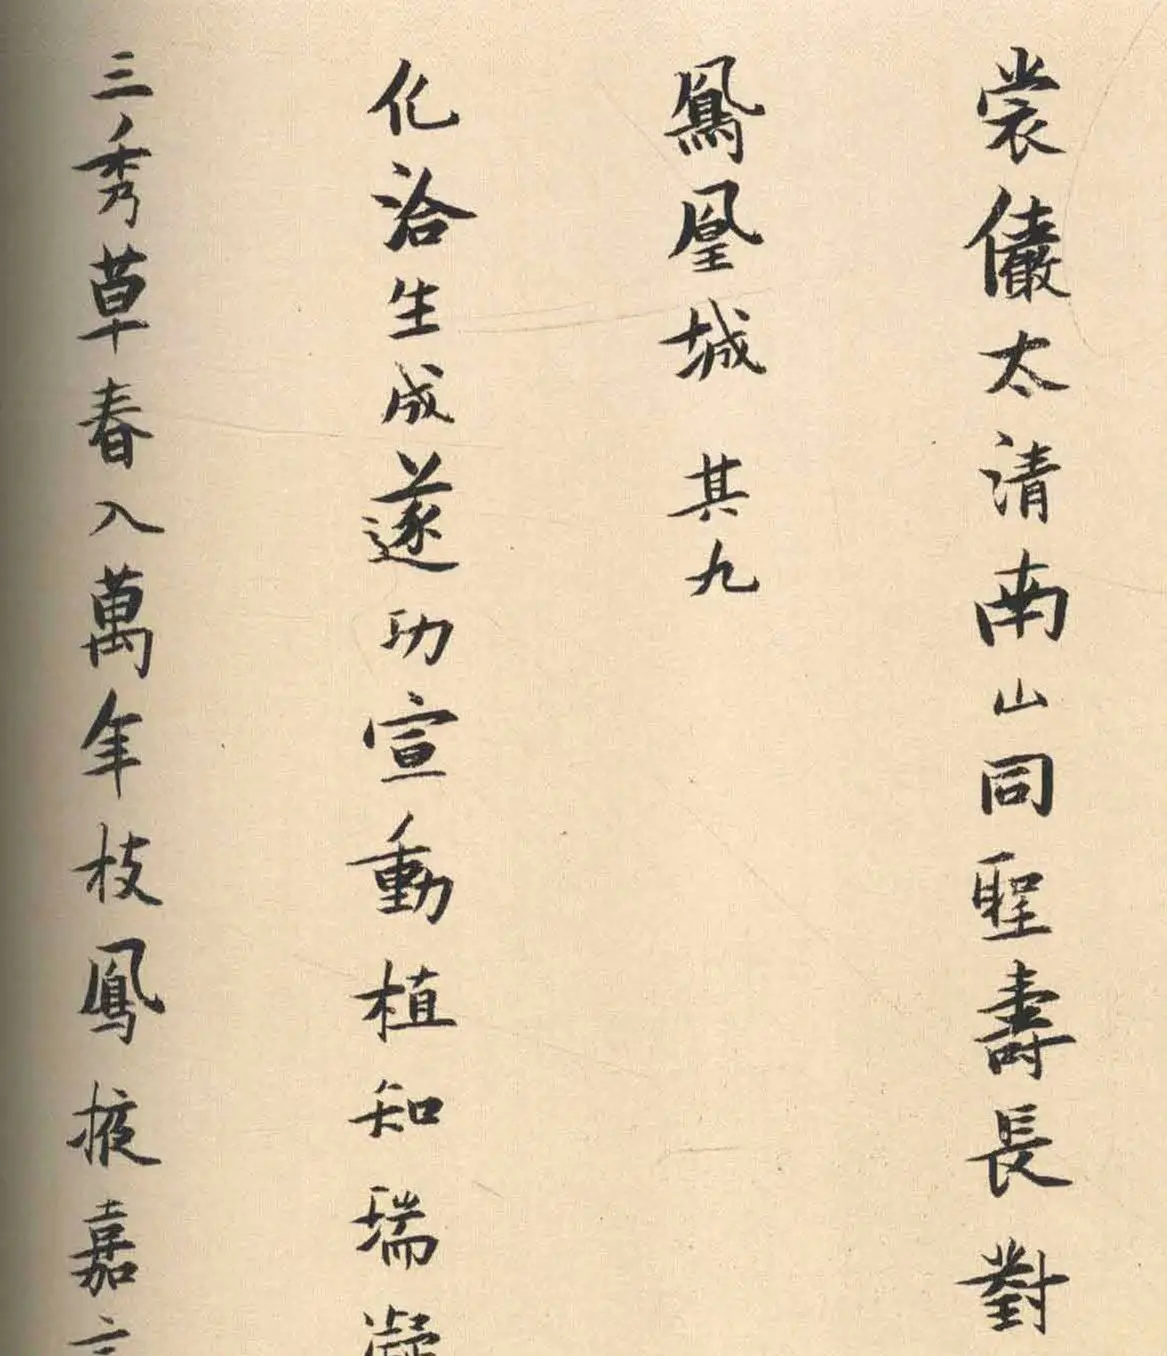 裳儼太清南山同聖壽長對
鳳凰城 其九
化洽生成遂功宣動植知瑞凝
三秀草春入萬年枝鳳掖嘉